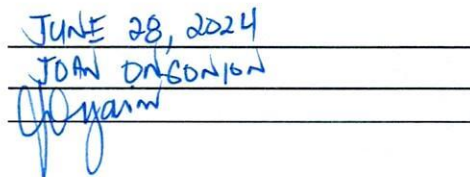 JUNE 28, 2024
JOAN ONGSONION